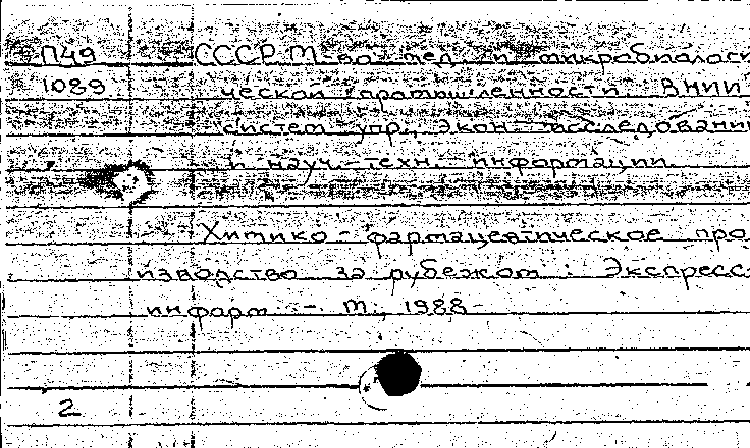 П49 СССР. М-во мед. и микробиологи
1089 ческой промышленности. ВНИИ
систем упр., экон. исследовании
и науч.-техн. информации.
Химико-фармацевтическое про
изводство за рубежом : Экспресс-
информ. - М., 1988-
2